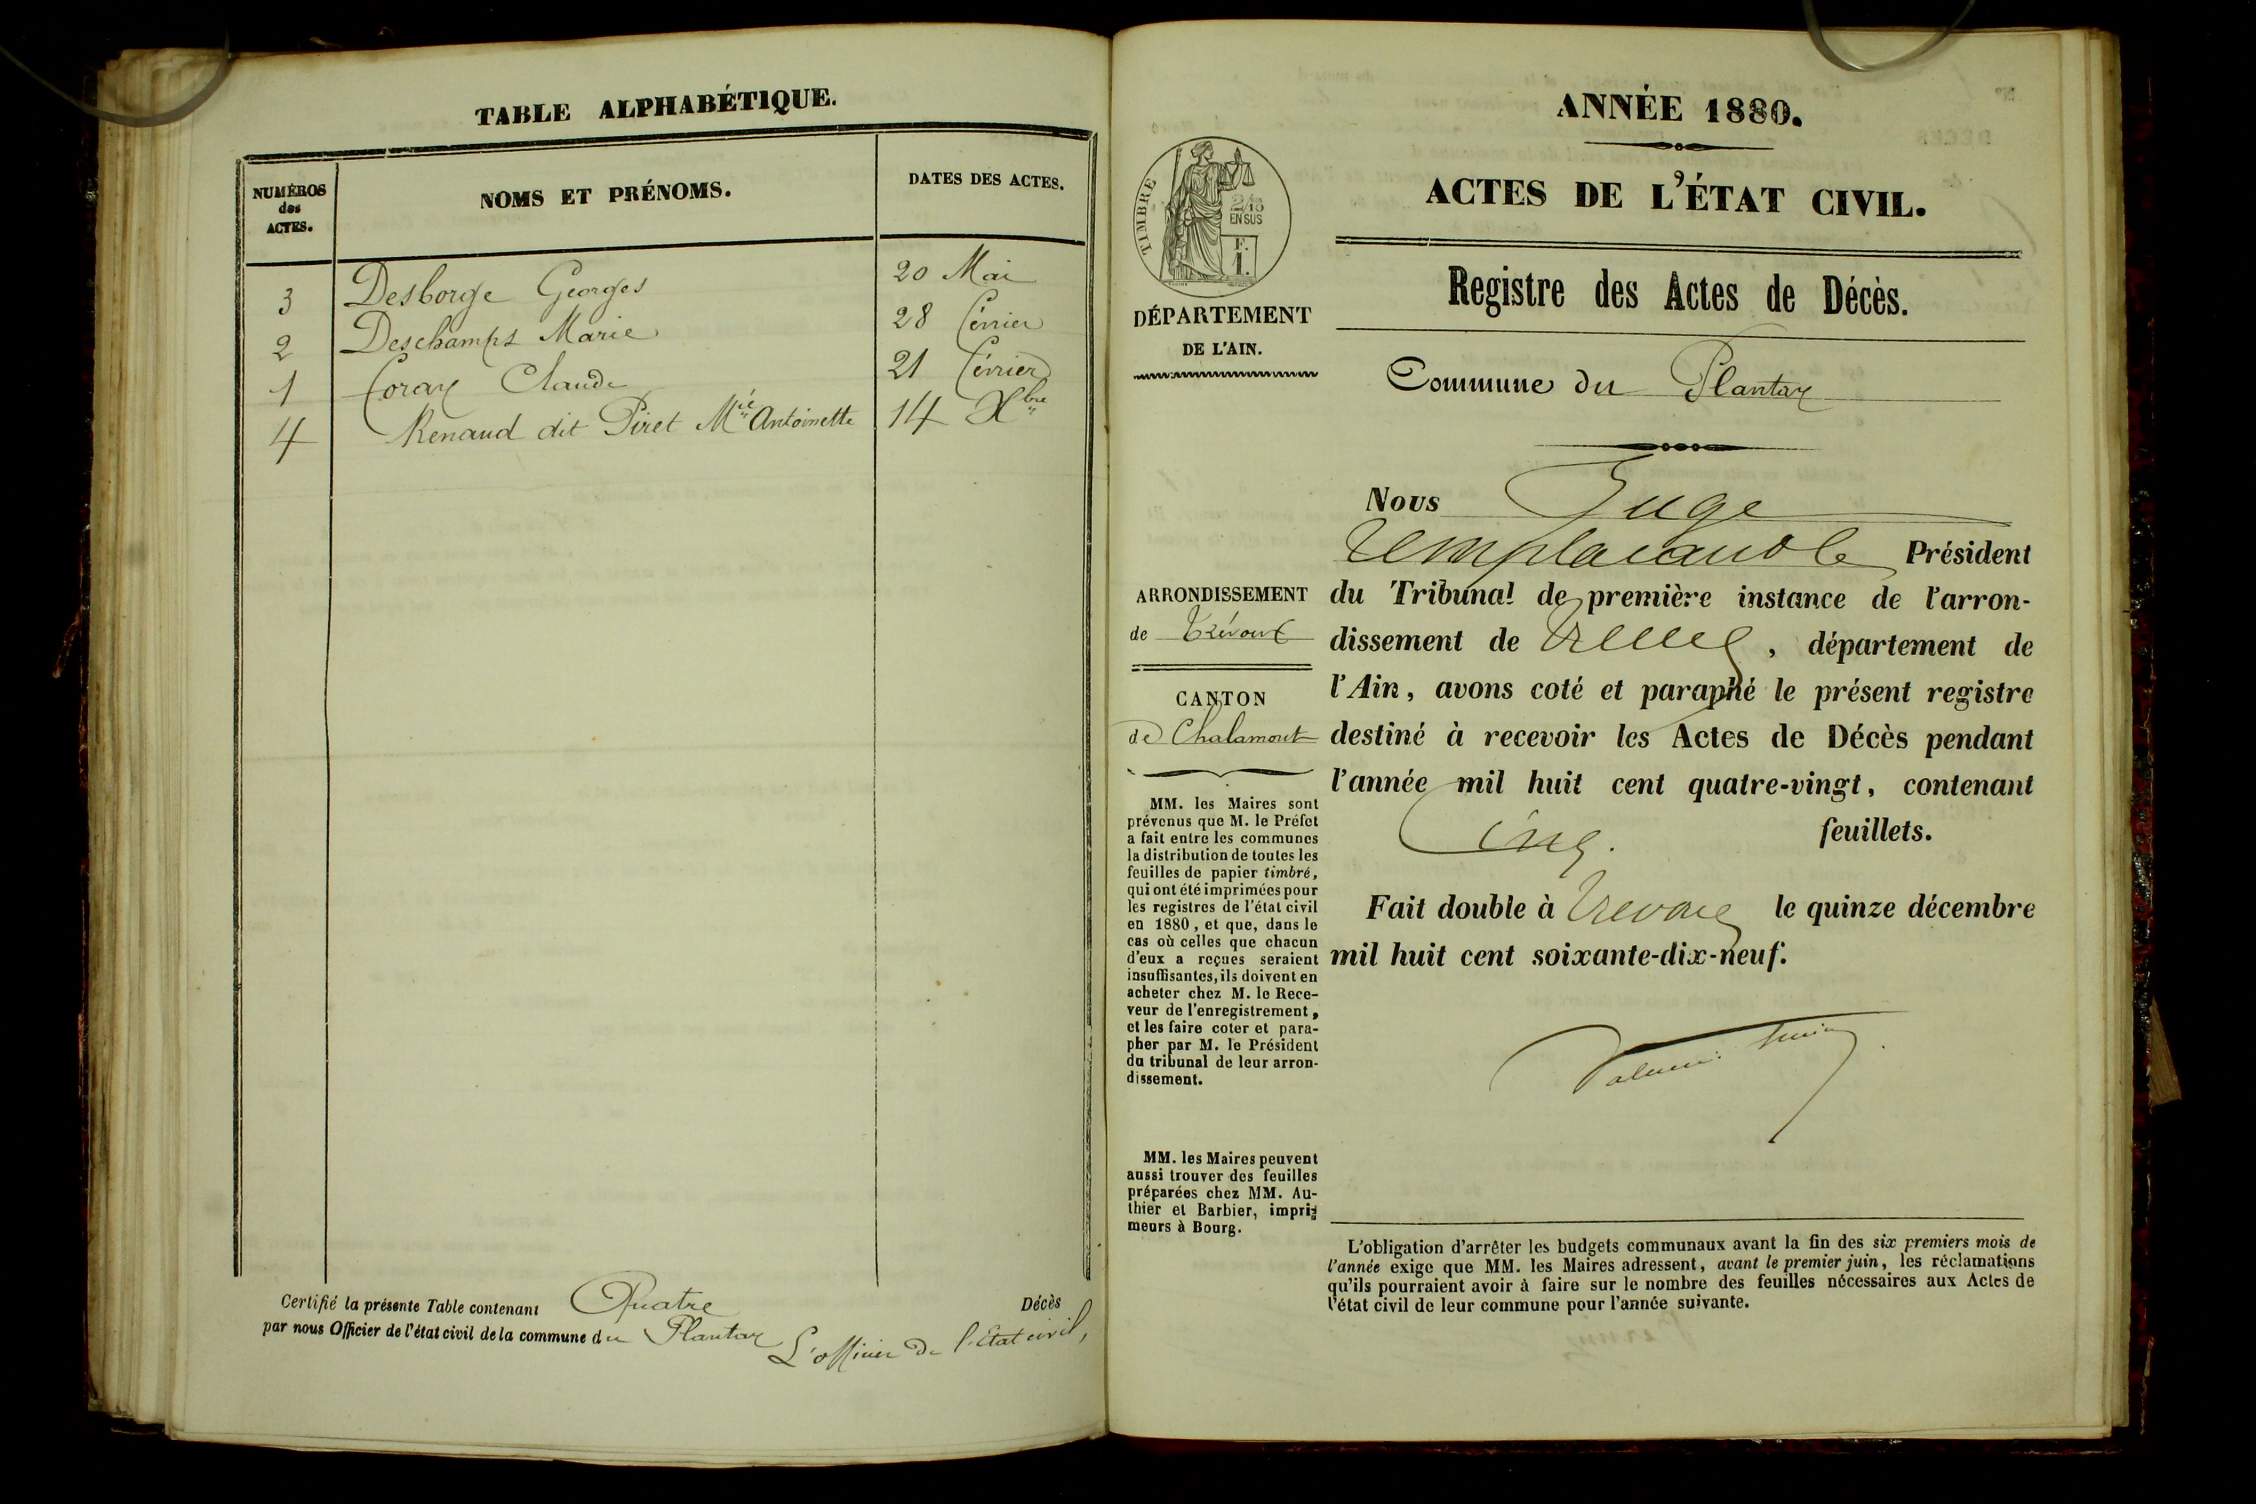 TABLE ALPHABÉTIQUE.
NUMÉROS
des
ACTES.
NOMS ET PRÉNOMS.
DATES DES ACTES.
3 Desborge Georges 20 Mai
2 Deschamps Marie 28 Février
1 Foray Claude 21 Février
4 Renaud dit Piret Mie Antoinette 14 Xbre
Certifié la présente Table contenant Quatre Décès
par nous Officier de l'état civil de la commune du Plantay
L'officier de l'Etat civil,
ANNÉE 1880.
ACTES DE L'ÉTAT CIVIL.
TIMBRE
2/10
EN SUS
F.
1.
DÉPARTEMENT
DE L'AIN.
Registre des Actes de Décès.
Commune du Plantay
ARRONDISSEMENT
de Trévoux
CANTON
de Chalamont
MM. les Maires sont
prévenus que M. le Préfet
a fait entre les communes
la distribution de toutes les
feuilles de papier timbré,
qui ont été imprimées pour
les registres de l'état civil
en 1880, et que, dans le
cas où celles que chacun
d'eux a reçues seraient
insuffisantes, ils doivent en
acheter chez M. le Rece-
veur de l'enregistrement,
et les faire coter et para-
pher par M. le Président
du tribunal de leur arron-
dissement.
MM. les Maires peuvent
aussi trouver des feuilles
préparées chez MM. Au-
thier et Barbier, impri-
meurs à Bourg.
Nous Juge
remplaçant le Président
du Tribunal de première instance de l'arron-
dissement de Trévoux, département de
l'Ain, avons coté et paraphé le présent registre
destiné à recevoir les Actes de Décès pendant
l'année mil huit cent quatre-vingt, contenant
Cinq. feuillets.
Fait double à Trévoux le quinze décembre
mil huit cent soixante-dix-neuf.
L'obligation d'arrêter les budgets communaux avant la fin des six premiers mois de
l'année exige que MM. les Maires adressent, avant le premier juin, les réclamations
qu'ils pourraient avoir à faire sur le nombre des feuilles nécessaires aux Actes de
l'état civil de leur commune pour l'année suivante.